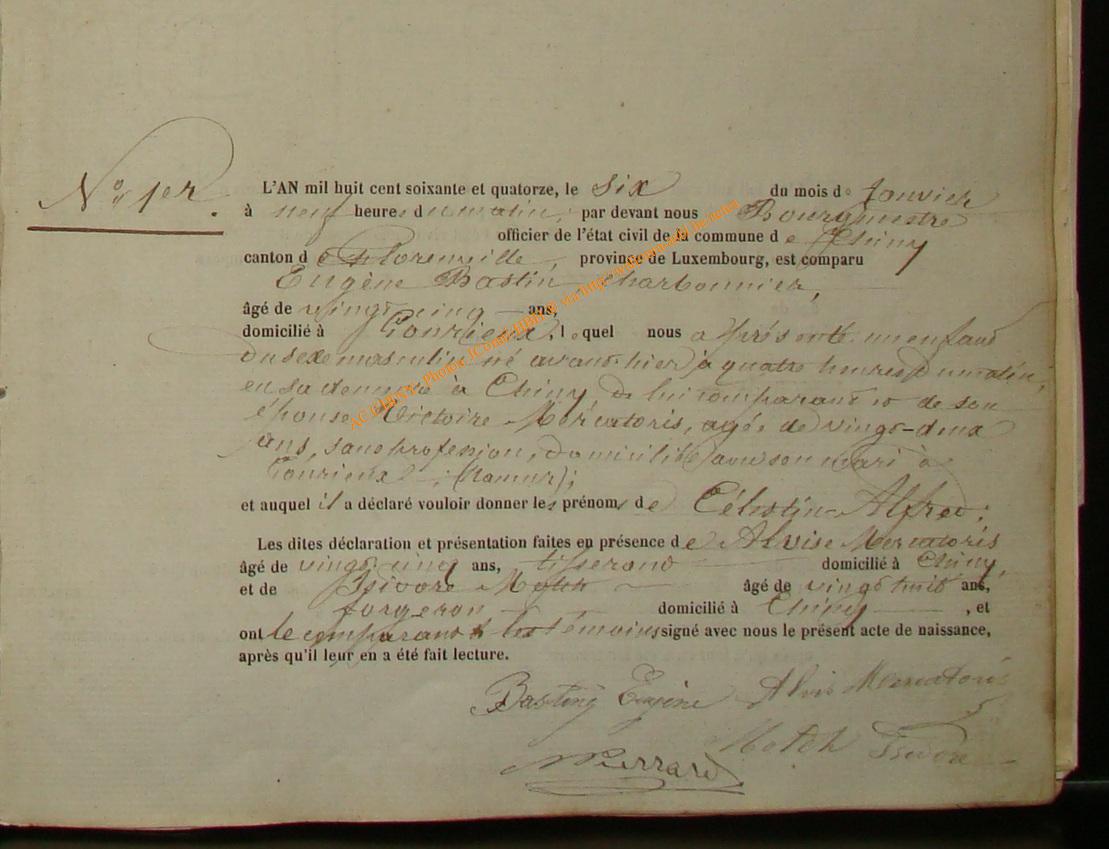 N° 1er.
L'AN mil huit cent soixante et quatorze, le six du mois de Janvier
à neuf heures du matin, par devant nous Bourgmestre
officier de l'état civil de la commune de Chiny
canton de Florenville, province de Luxembourg, est comparu
Eugène Bastin, charbonnier,
âgé de vingt cinq ans,
domicilié à Courrière, lequel nous a présenté un enfant
du sexe masculin né avant-hier à quatre heures du matin,
en sa demeure à Chiny, de lui comparant et de son
épouse Victoire Mercatoris, agée de vingt-deux
ans, sans profession, domiciliée avec son mari à
Courrière (Namur);
et auquel il a déclaré vouloir donner les prénoms de Célestin Alfred;
Les dites déclaration et présentation faites en présence de Alvise Mercatoris
âgé de vingt cinq ans, tisserand domicilié à Chiny,
et de Isidore Moteh âgé de vingt huit ans,
forgeron domicilié à Chiny, et
ont le comparant & les témoins signé avec nous le présent acte de naissance,
après qu'il leur en a été fait lecture.
Basting Eugène Alvis Mercatoris
Moteh Isidore
Pierrard